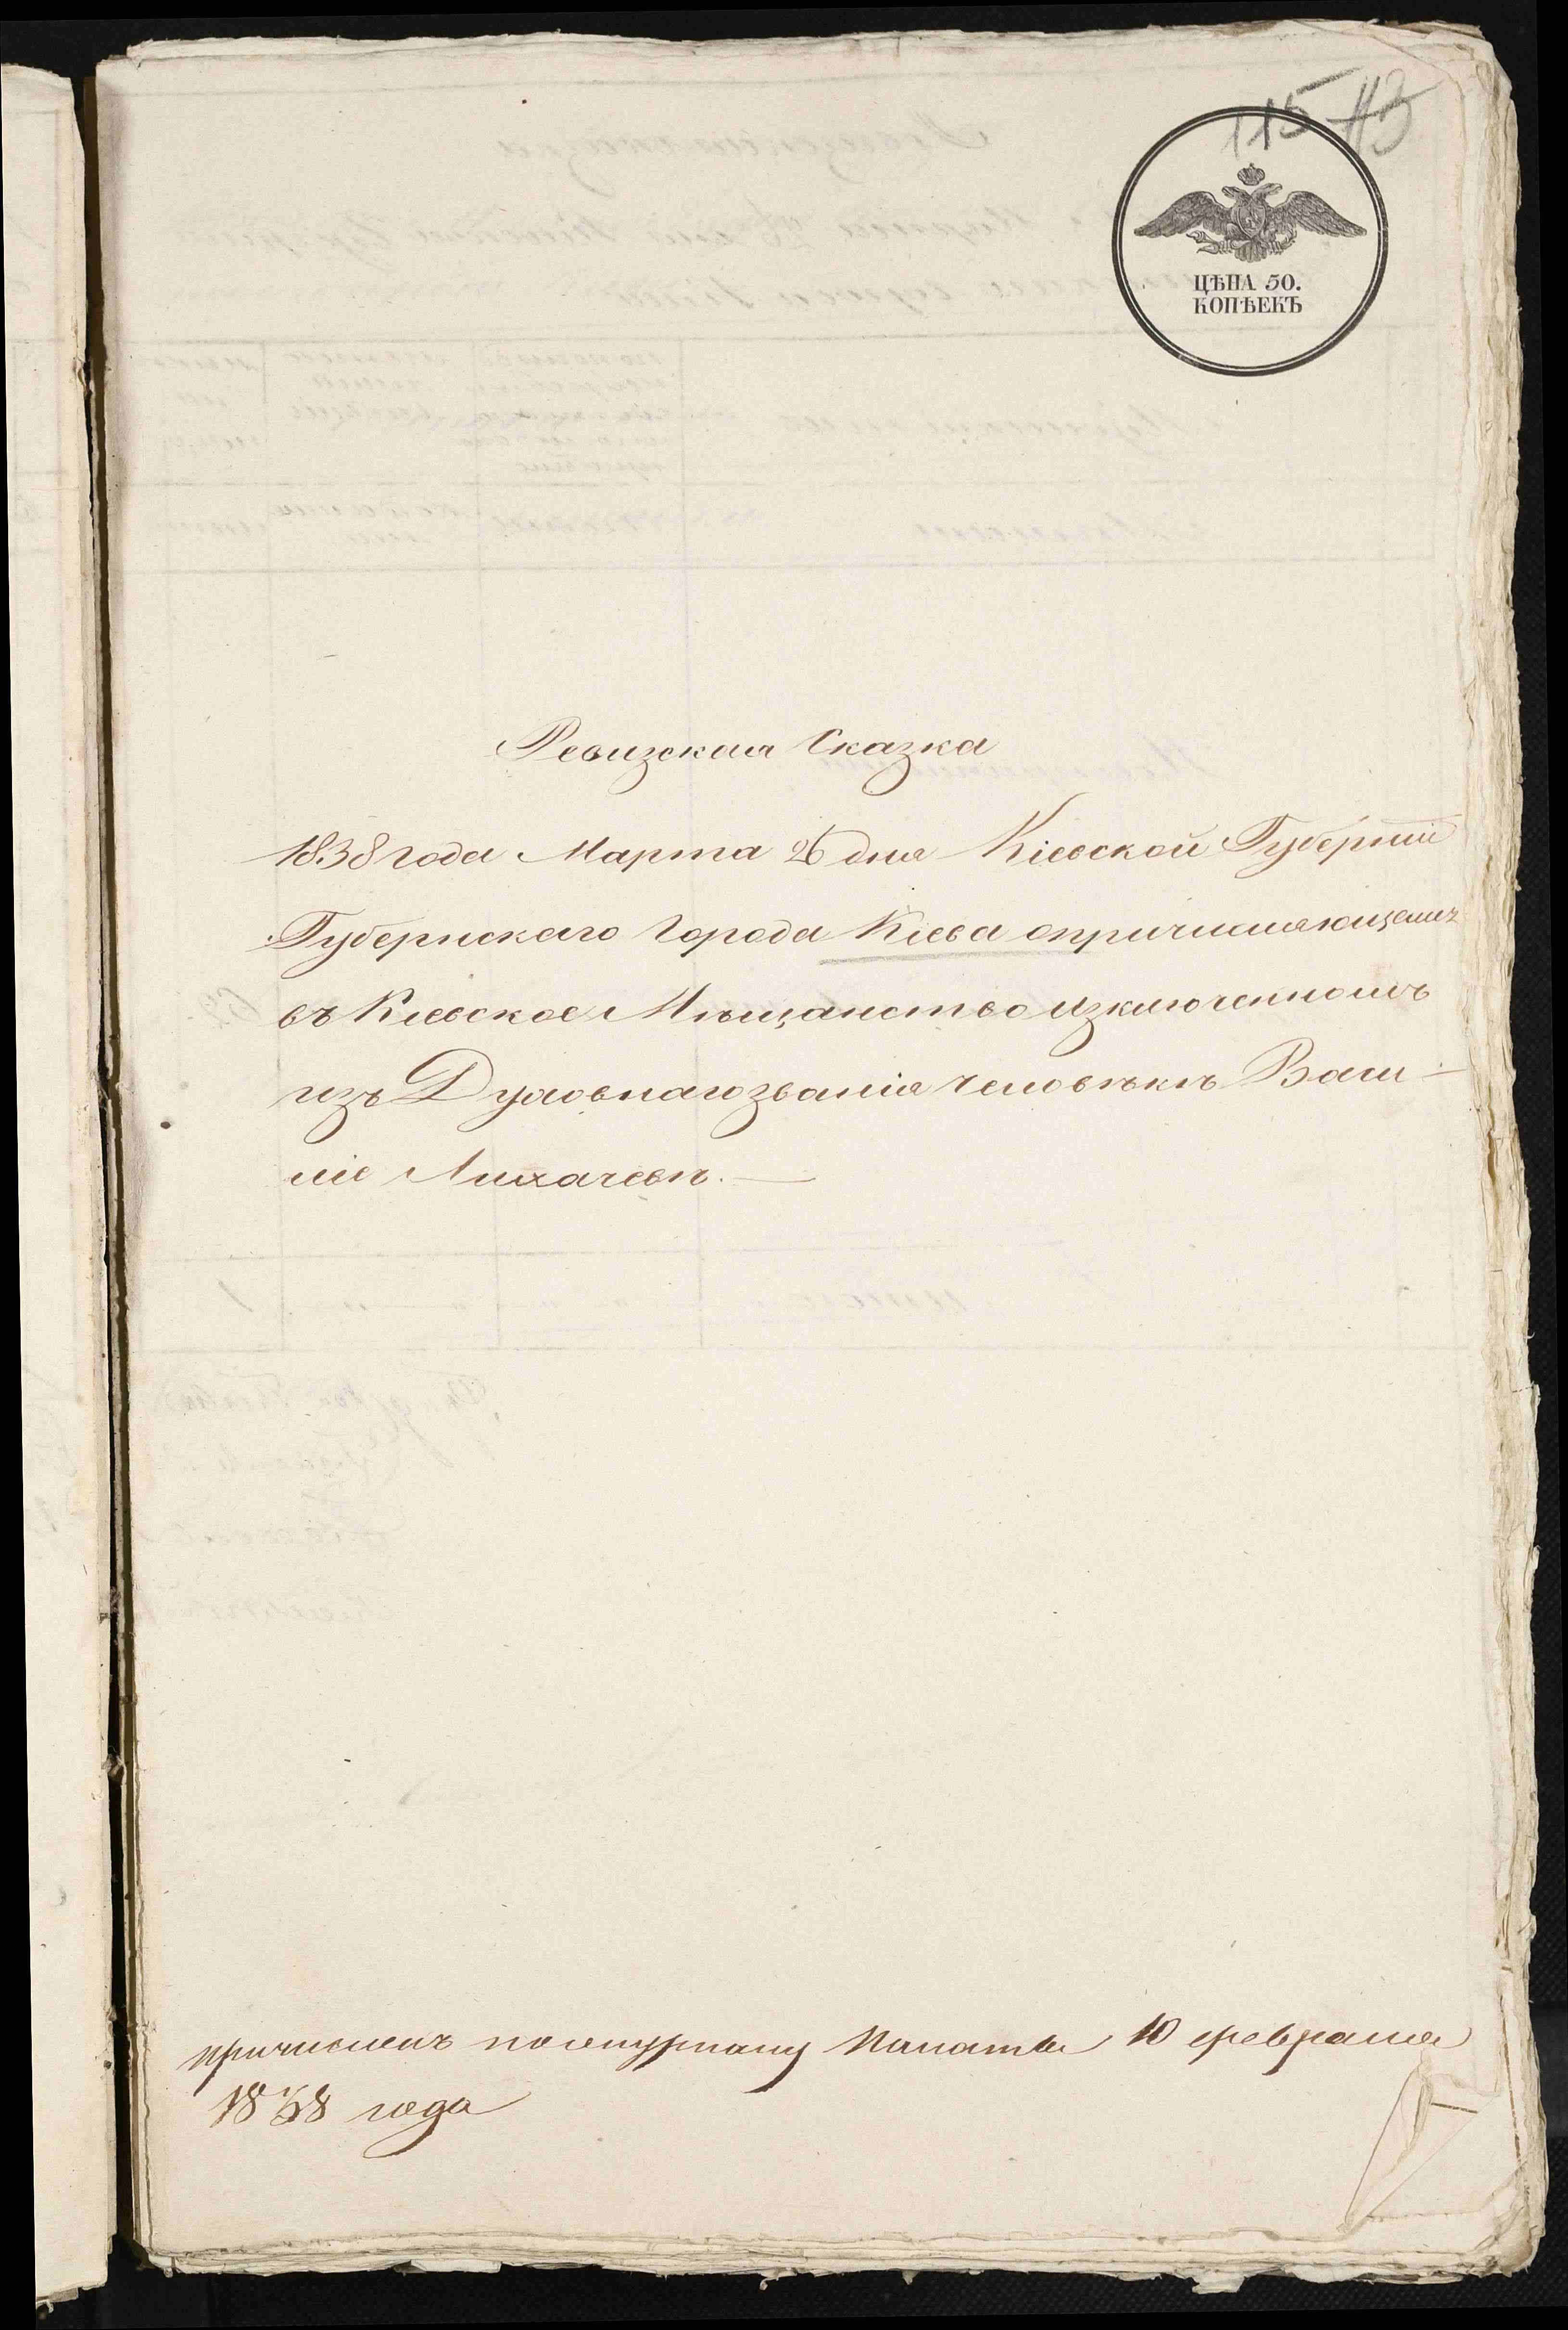 115 113
ЦѢНА 50.
КОПѢЕКЪ
Ревизская Сказка
1838 года Марта 26 дня Кіевской Губерніи
Губернскаго Города Кіева опричисляющемся
въ Киевское Мѣщанство изключенномъ
изъ Духовнаго званія человѣкѣ Васи-
ліе Лихачевѣ.
причисленъ по журналу Палаты 10 февраля
1838 года